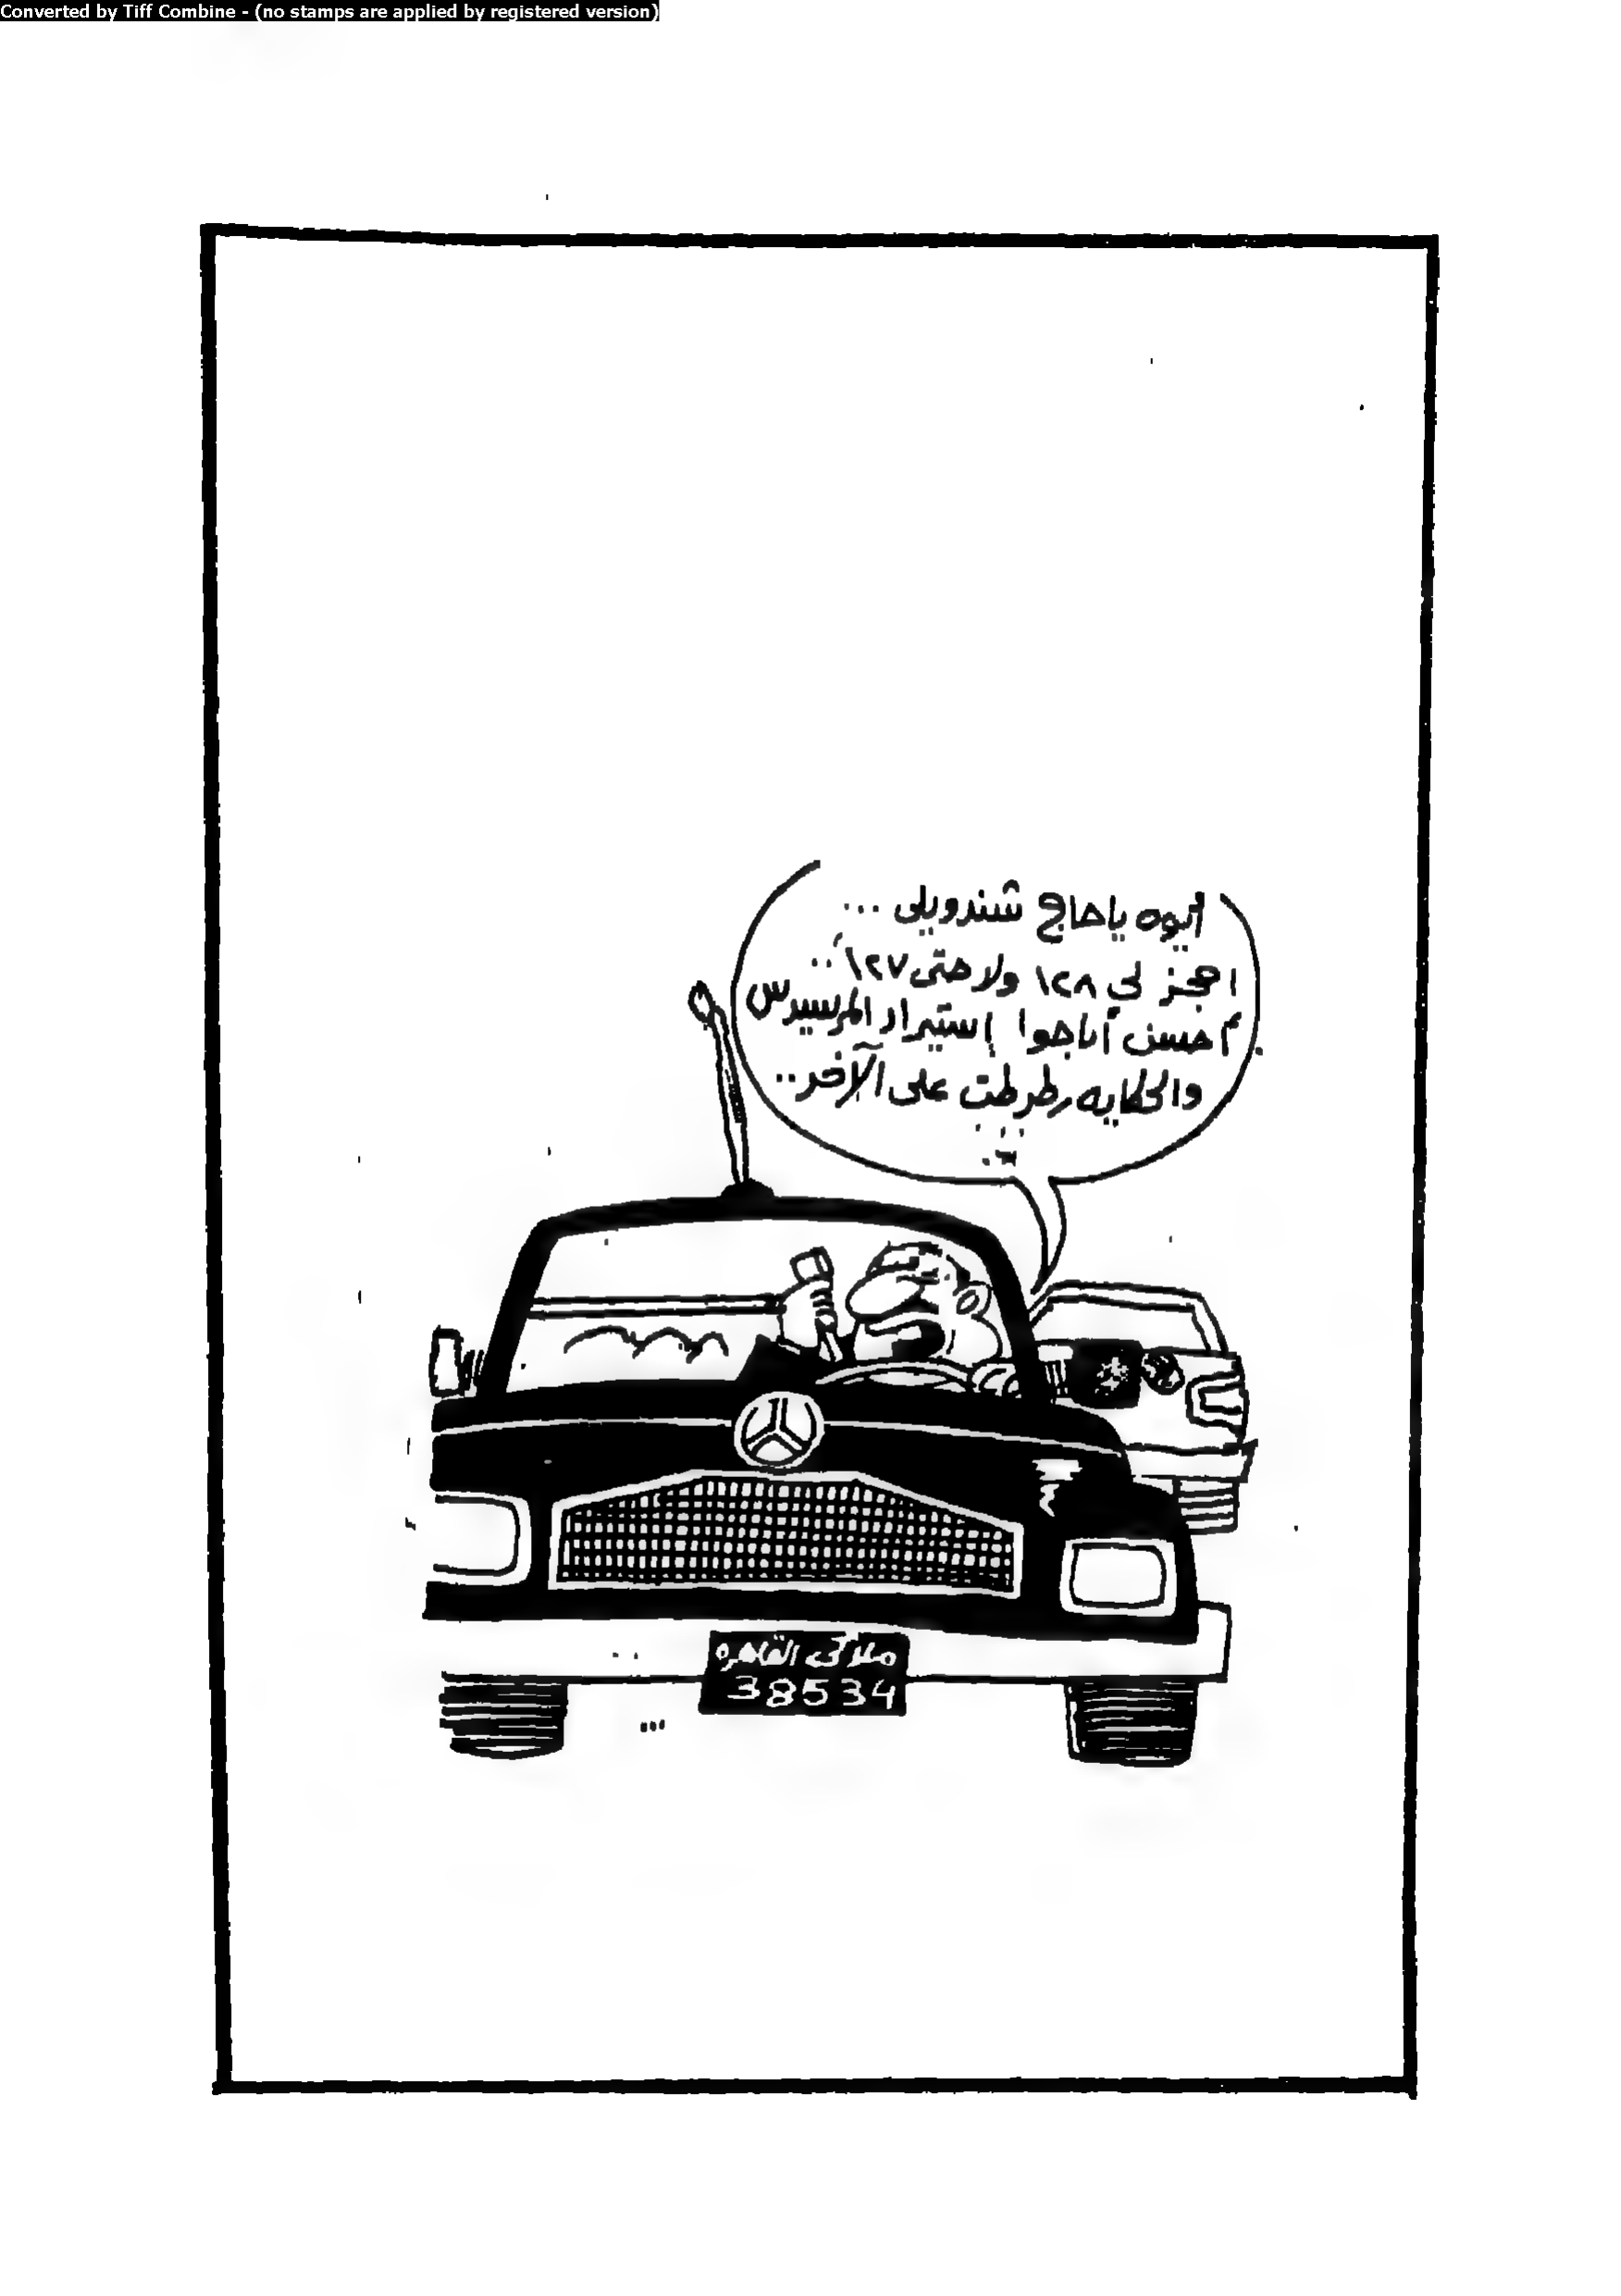 Converted by Tiff Combine - (no stamps are applied by registered version)
أيوه ياحاج شندويلى ...
احجز لي ١٢٨ ولا حتى ١٢٧ ..
أحسن أباحوا إستيراد المرسيدس
والحكايه بظرطت على الآخر ..
ملاكى القاهره
38534